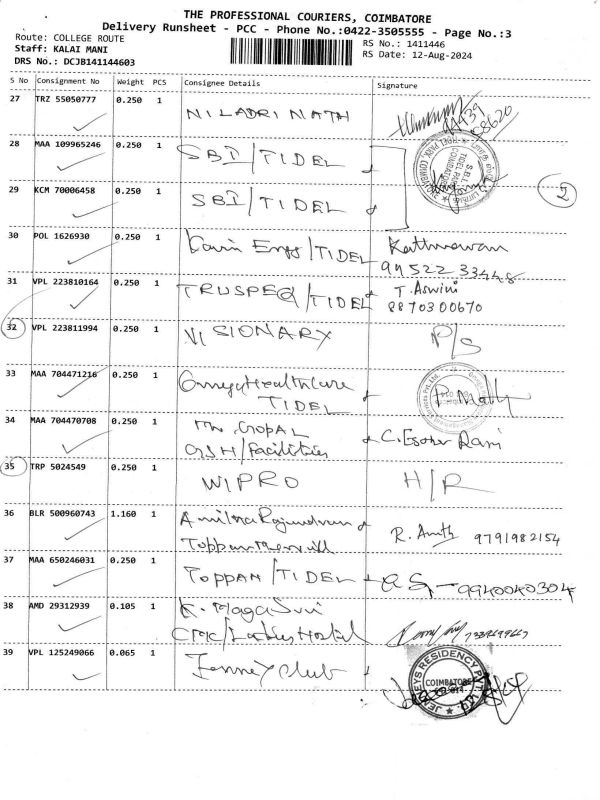 THE PROFESSIONAL COURIERS, COIMBATORE
Delivery Runsheet - PCC - Phone No.:0422-3505555 - Page No.:3
Route: COLLEGE ROUTE
Staff: KALAI MANI
DRS No.: DCJB141144603
RS No.: 1411446
RS Date: 12-Aug-2024
S No Consignment No Weight PCS Consignee Details Signature
27 TRZ 55050777 0.250 1 NILADRI NATH
28 MAA 109965246 0.250 1 SBI/TIDEL
29 KCM 70006458 0.250 1 SBI/TIDEL
2
30 POL 1626930 0.250 1 /TIDEL
99522 33448
31 VPL 223810164 0.250 1 /TIDEL T. Aswini
8870300670
32 VPL 223811994 0.250 1 VISIONARY P/S
33 MAA 704471216 0.250 1 Omega Healthcare
TIDEL
34 MAA 704470708 0.250 1 GOPAL C. Esther Rani
GSH/Facilities
35 TRP 5024549 0.250 1 WIPRO H/R
36 BLR 500960743 1.160 1 R. 9791982154
Toppan Merrill
37 MAA 650246031 0.250 1 TOPPAN/TIDEL 9940040304
38 AMD 29312939 0.105 1 K.
CMC/Ladies Hostel
39 VPL 125249066 0.065 1 Club
JENNEYS RESIDENCY PVT. LTD.
COIMBATORE